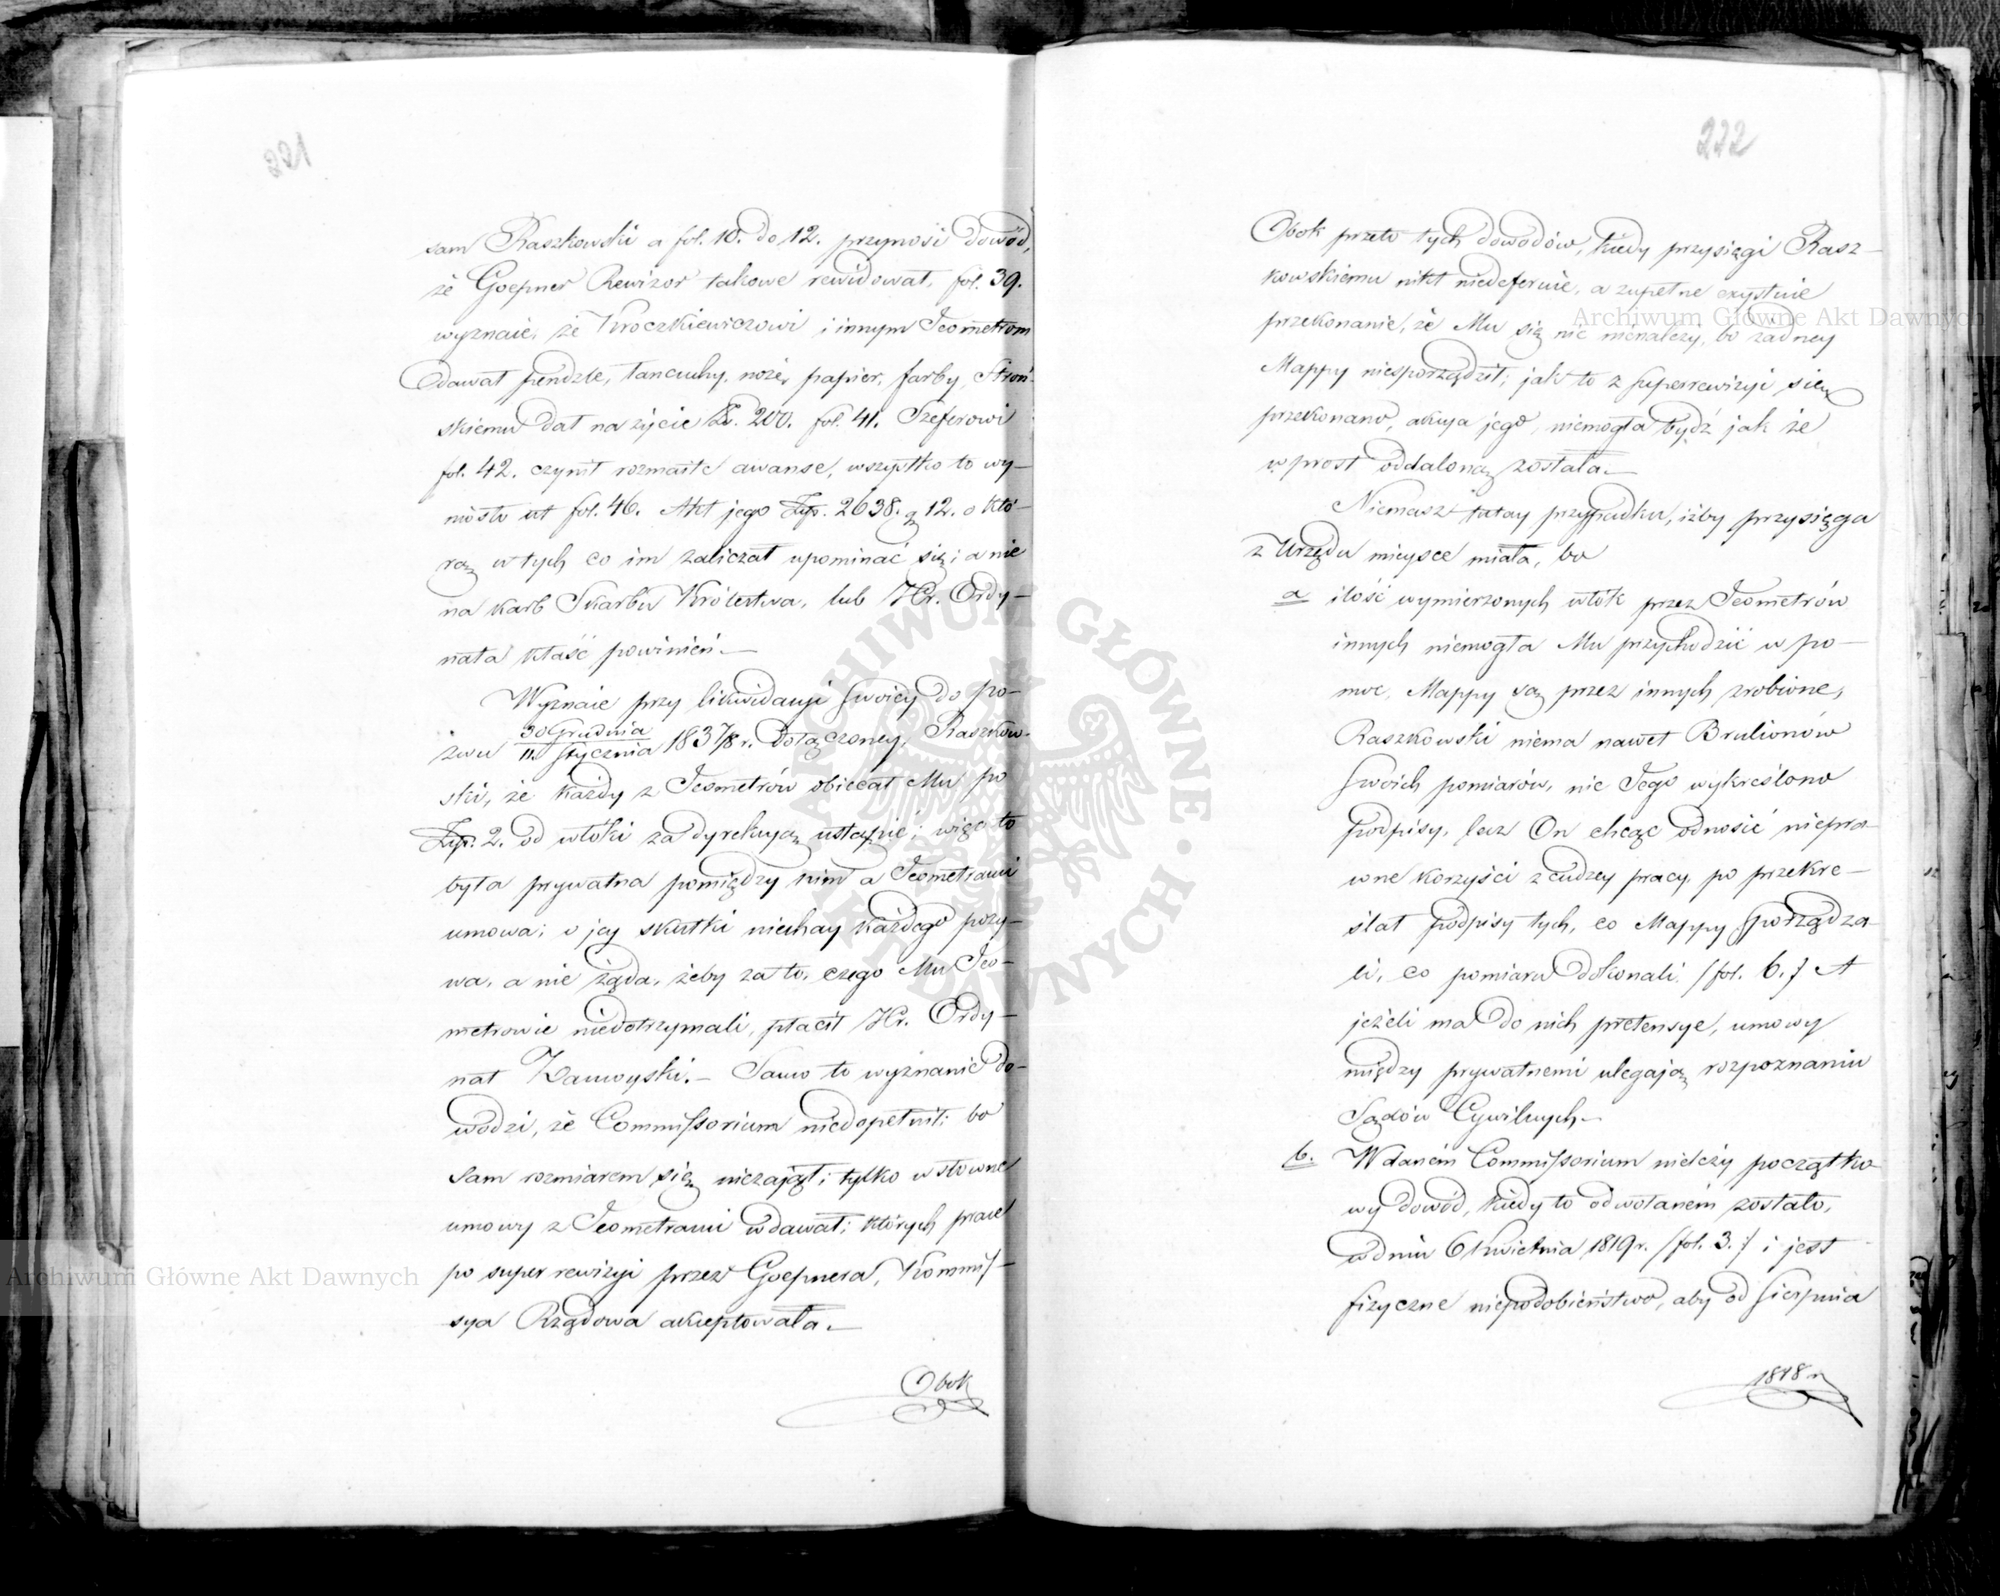 221
sam Raszkowski a fol. 10. do 12. przynosi dowód,
że Goepner Rewizor takowe rewidował, fol. 39.
wyznaie, że Kroczkiewiczowi i innym Jeometrom
dawał pendzle, łancuchy, noże, papier, farby,
skiemu dał na życie Zł. 200. fol. 41. Szeferowi
fol. 42. czynił rozmaite awanse, wszystko to wy-
niosło ut fol. 46. Akt jego Złp. 2638. g 12. o któ-
rą w tych co im zaliczał upominać się; a nie
na karb Skarbu Królestwa, lub Hr. Ordy-
nata kłaść powinien.—
Wyznaie przy likwidacyi swoiey do po-
zwu 30 Grudnia / 11. Stycznia 1837/8 r. dołączoney, Raszkow-
ski, że każdy z Jeometrów obiecał Mu po
Złp. 2. od włóki za dyrekcyą ustąpić; więc to
była prywatna pomiędzy nim a Jeometrami
umowa; o jey skutki niechay każdego pozy-
wa, a nie żąda, żeby za to, czego Mu Jeo-
metrowie niedotrzymali, płacił Hr. Ordy-
nat Zamoyski.— Samo to wyznanie do-
wodzi, że Commissorium niedopełnił; bo
sam rozmiarem się niezajął; tylko w słowne
umowy z Jeometrami wdawał; których prace
po super rewizyi przez Goepnera, Kommis-
sya Rządowa akceptowała.—
Obok
222
Obok przeto tych dowodów, kiedy przysięgi Rasz-
kowskiemu nikt niedeferuie, a zupełne exystuie
przekonanie, że Mu się nic nienależy, bo żadney
Mappy niesporządził; jak to z superrewizyi się
przekonano, akcya jego, niemogła bydź jak że
wprost oddaloną została.—
Niemasz tutay przypadku, iżby przysięga
z Urzędu mieysce miała, bo
a ilość wymierzonych włók przez Jeometrów
innych niemogła Mu przychodzić w po-
moc, Mappy są przez innych zrobione,
Raszkowski niema nawet Brulionów
swoich pomiarów, nie Jego wykreślono
podpisy, lecz On chcąc odnosić niepra-
wne korzyści z cudzey pracy, po przekre-
ślał podpisy tych, co Mappy sporządza-
li, co pomiaru dokonali. /fol. 6./ A
jeżeli ma do nich pretensye, umowy
między prywatnemi ulegają rozpoznaniu
Sądów Cywilnych.—
b. W daném Commissorium nieleży początko-
wy dowód, kiedy to odwołaném zostało,
w dniu 6 Kwietnia 1819 r. /fol. 3./ i jest
fizyczne niepodobieństwo, aby od Sierpnia
1818 r.
Archiwum Główne Akt Dawnych
Archiwum Główne Akt Dawnych
ARCHIWUM GŁÓWNE AKT DAWNYCH